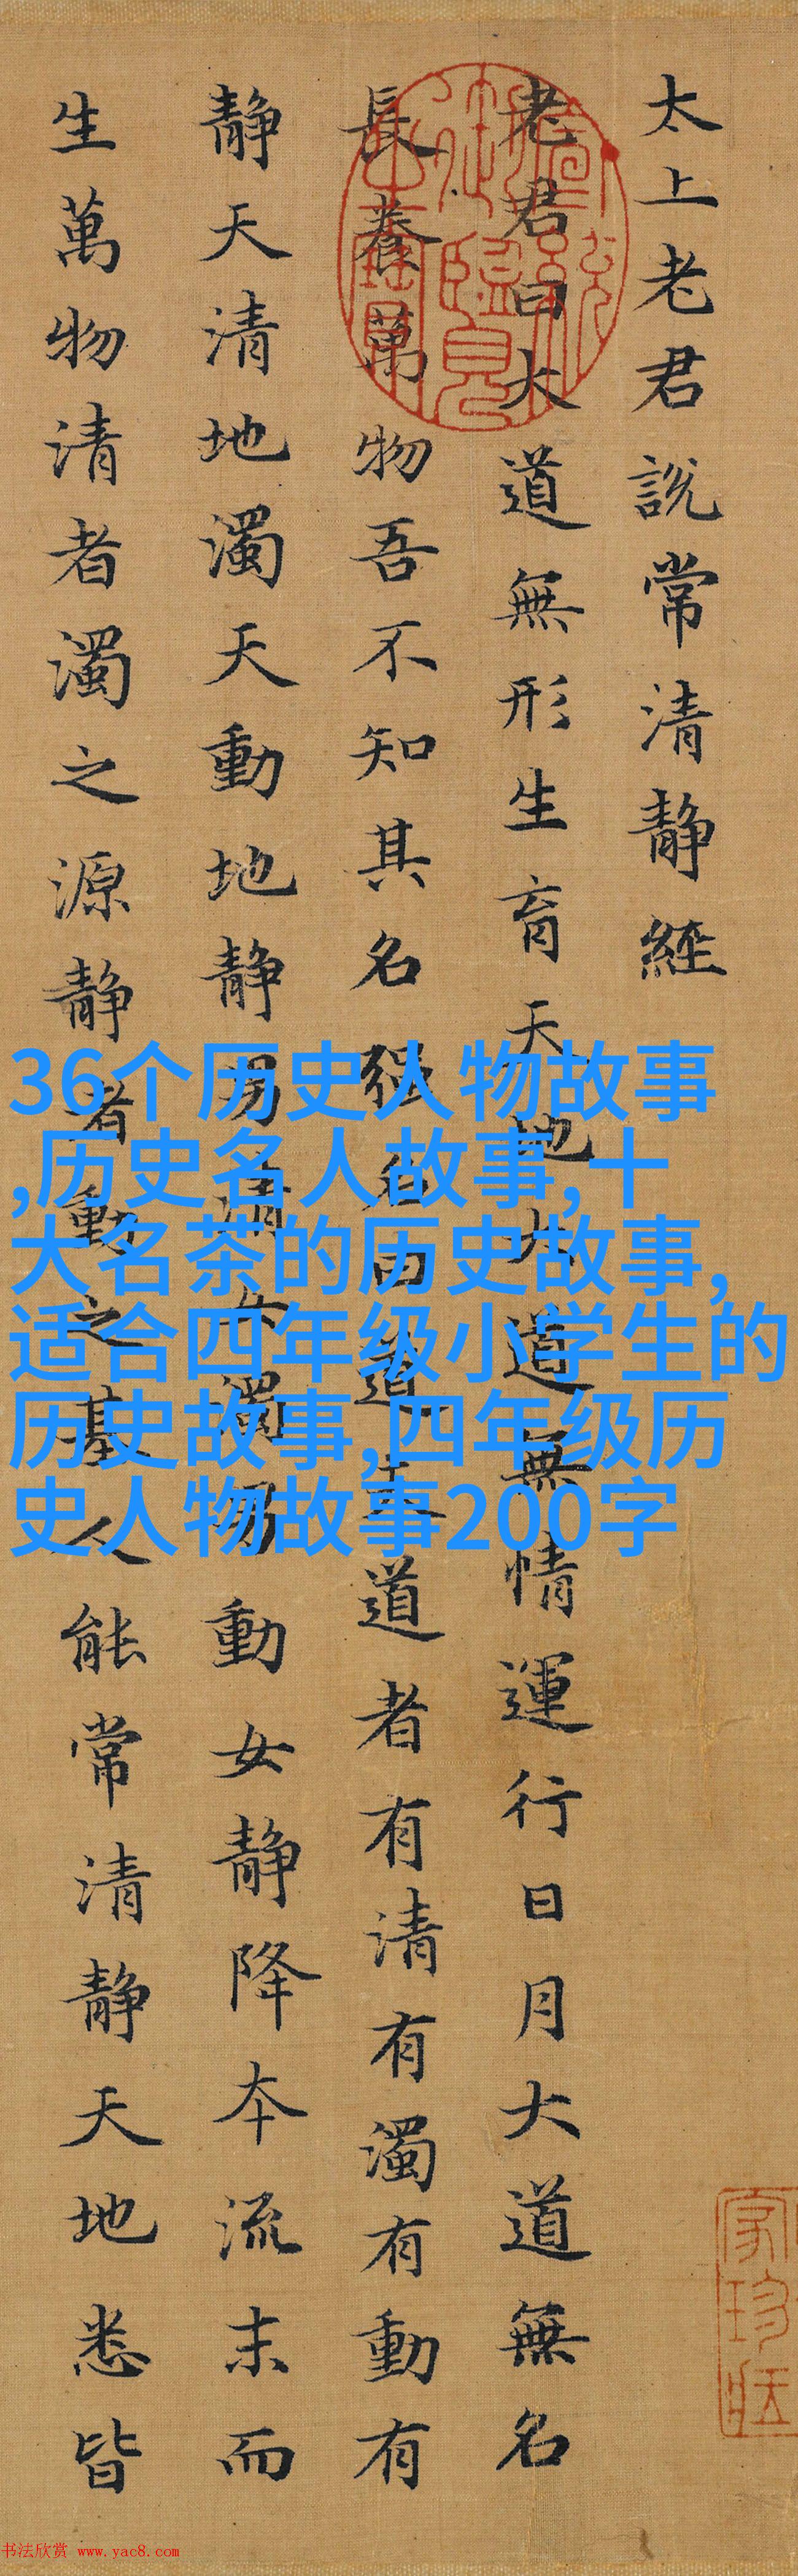 太上老君説常清静經
老君曰大道無形生育天地大道無情運行日月大道無名
長養萬物吾不知其名强名曰道夫道者有清有濁有動有
静天清地濁天動地静男清女濁男動女静降本流末而
生萬物清者濁之源静者動之基人能常清静天地悉皆
36个历史人物故事
,历史名人故事,十
大名茶的历史故事,
适合四年级小学生的
历史故事,四年级历
史人物故事200字
书法欣赏 www.yac8.com